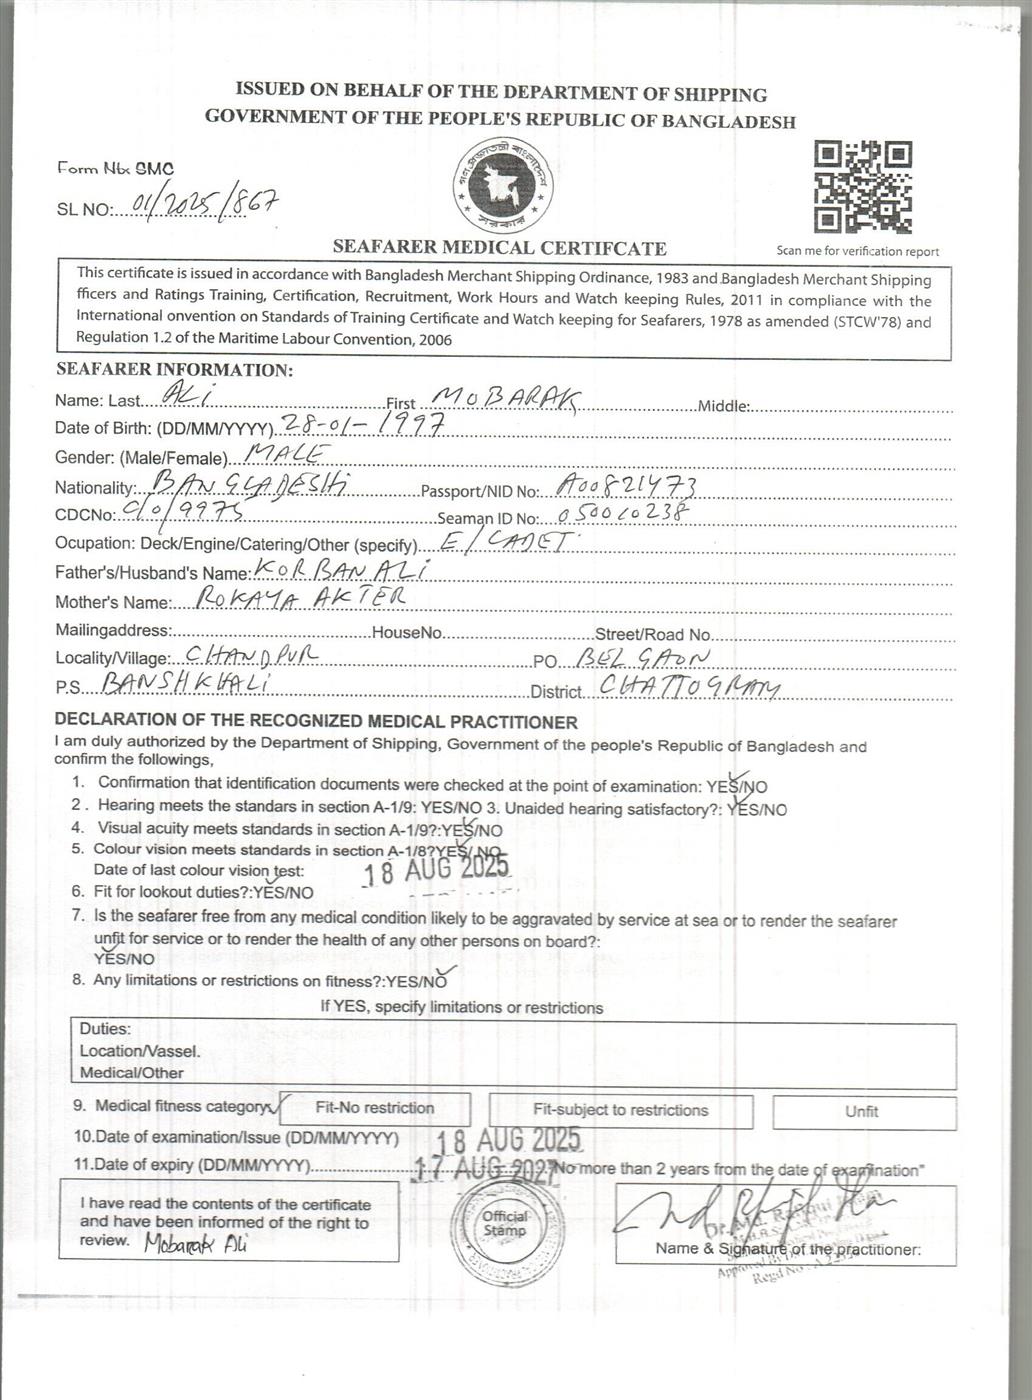 ISSUED ON BEHALF OF THE DEPARTMENT OF SHIPPING
GOVERNMENT OF THE PEOPLE'S REPUBLIC OF BANGLADESH
Form No: SMC
SL NO:....01/2025/867
গণপ্রজাতন্ত্রী বাংলাদেশ
সরকার
SEAFARER MEDICAL CERTIFCATE
Scan me for verification report
This certificate is issued in accordance with Bangladesh Merchant Shipping Ordinance, 1983 and Bangladesh Merchant Shipping
fficers and Ratings Training, Certification, Recruitment, Work Hours and Watch keeping Rules, 2011 in compliance with the
International onvention on Standards of Training Certificate and Watch keeping for Seafarers, 1978 as amended (STCW'78) and
Regulation 1.2 of the Maritime Labour Convention, 2006
SEAFARER INFORMATION:
Name: Last....ALI....First....MOBARAK....Middle:....
Date of Birth: (DD/MM/YYYY)..28-01-1997
Gender: (Male/Female)..MALE
Nationality:..BANGLADESHI....Passport/NID No:..A00821473
CDCNo:C/O/9975....Seaman ID No:..050010238
Ocupation: Deck/Engine/Catering/Other (specify)..E/CADET
Father's/Husband's Name:KORBAN ALI
Mother's Name:..ROKAYA AKTER
Mailingaddress:....HouseNo....Street/Road No....
Locality/Village:..CHANDPUR....PO..BELGAON
P.S..BANSHKHALI....District..CHATTOGRAM
DECLARATION OF THE RECOGNIZED MEDICAL PRACTITIONER
I am duly authorized by the Department of Shipping, Government of the people's Republic of Bangladesh and
confirm the followings,
1. Confirmation that identification documents were checked at the point of examination: YES/NO
2 . Hearing meets the standars in section A-1/9: YES/NO 3. Unaided hearing satisfactory?: YES/NO
4. Visual acuity meets standards in section A-1/9?:YES/NO
5. Colour vision meets standards in section A-1/8?YES/ NO
Date of last colour vision test: 18 AUG 2025
6. Fit for lookout duties?:YES/NO
7. Is the seafarer free from any medical condition likely to be aggravated by service at sea or to render the seafarer
unfit for service or to render the health of any other persons on board?:
YES/NO
8. Any limitations or restrictions on fitness?:YES/NO
If YES, specify limitations or restrictions
Duties:
Location/Vassel.
Medical/Other
9. Medical fitness category Fit-No restriction Fit-subject to restrictions Unfit
10.Date of examination/Issue (DD/MM/YYYY) 18 AUG 2025
11.Date of expiry (DD/MM/YYYY)....17 AUG 2027 No more than 2 years from the date of examination"
I have read the contents of the certificate
and have been informed of the right to
review. Mobarak Ali
Official
Stamp
Dr. Md.
Name & Signature of the practitioner:
Regd No